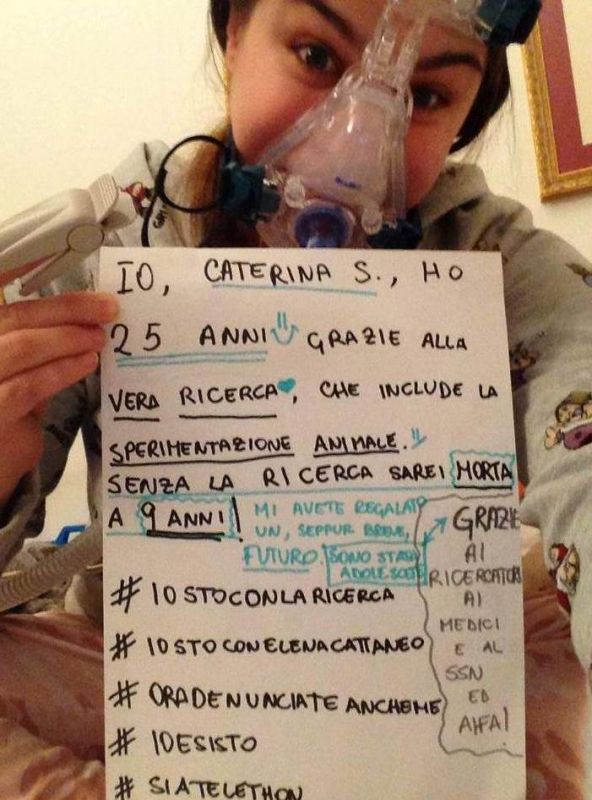 IO, CATERINA S., HO
25 ANNI GRAZIE ALLA
VERA RICERCA, CHE INCLUDE LA
SPERIMENTAZIONE ANIMALE.
SENZA LA RICERCA SAREI MORTA
A 9 ANNI!
MI AVETE REGALATO
UN, SEPPUR BREVE,
FUTURO.
SONO STATA
GRAZIE
AI
RICERCATORI
AI
MEDICI
E AL
SSN
ED
# IOSTOCONLARICERCA
# IOSTOCONELENACATTANEO
# ORADENUNCIATEANCHEME
# IOESISTO
# SIATELETHON